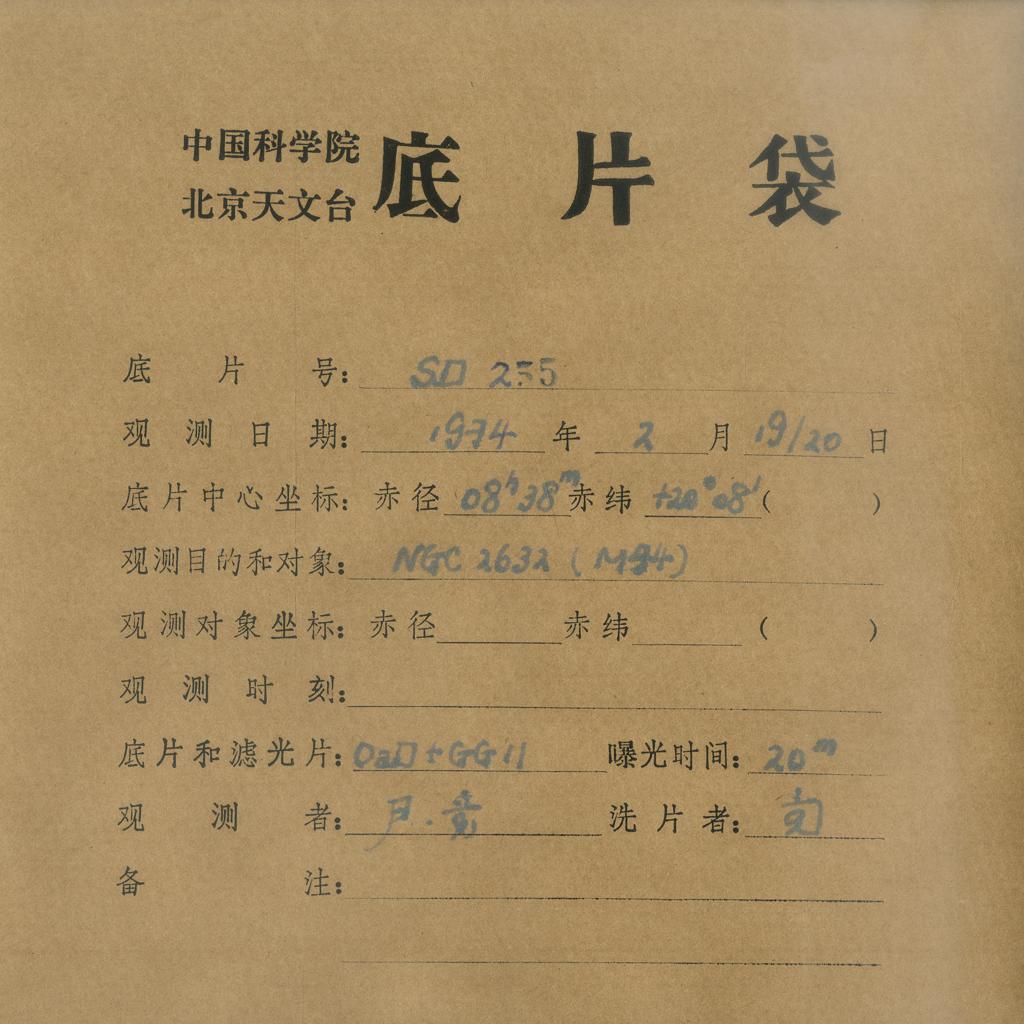 中国科学院
北京天文台 底片袋
底片号: SD 235
观测日期: 1974年2月19/20日
底片中心坐标: 赤径 08h38m 赤纬 +20°08' ( )
观测目的和对象: NGC 2632 (M44)
观测对象坐标: 赤径 赤纬 ( )
观测时刻:
底片和滤光片: OaD+GG11 曝光时间: 20m
观测者: 洗片者:
备注: